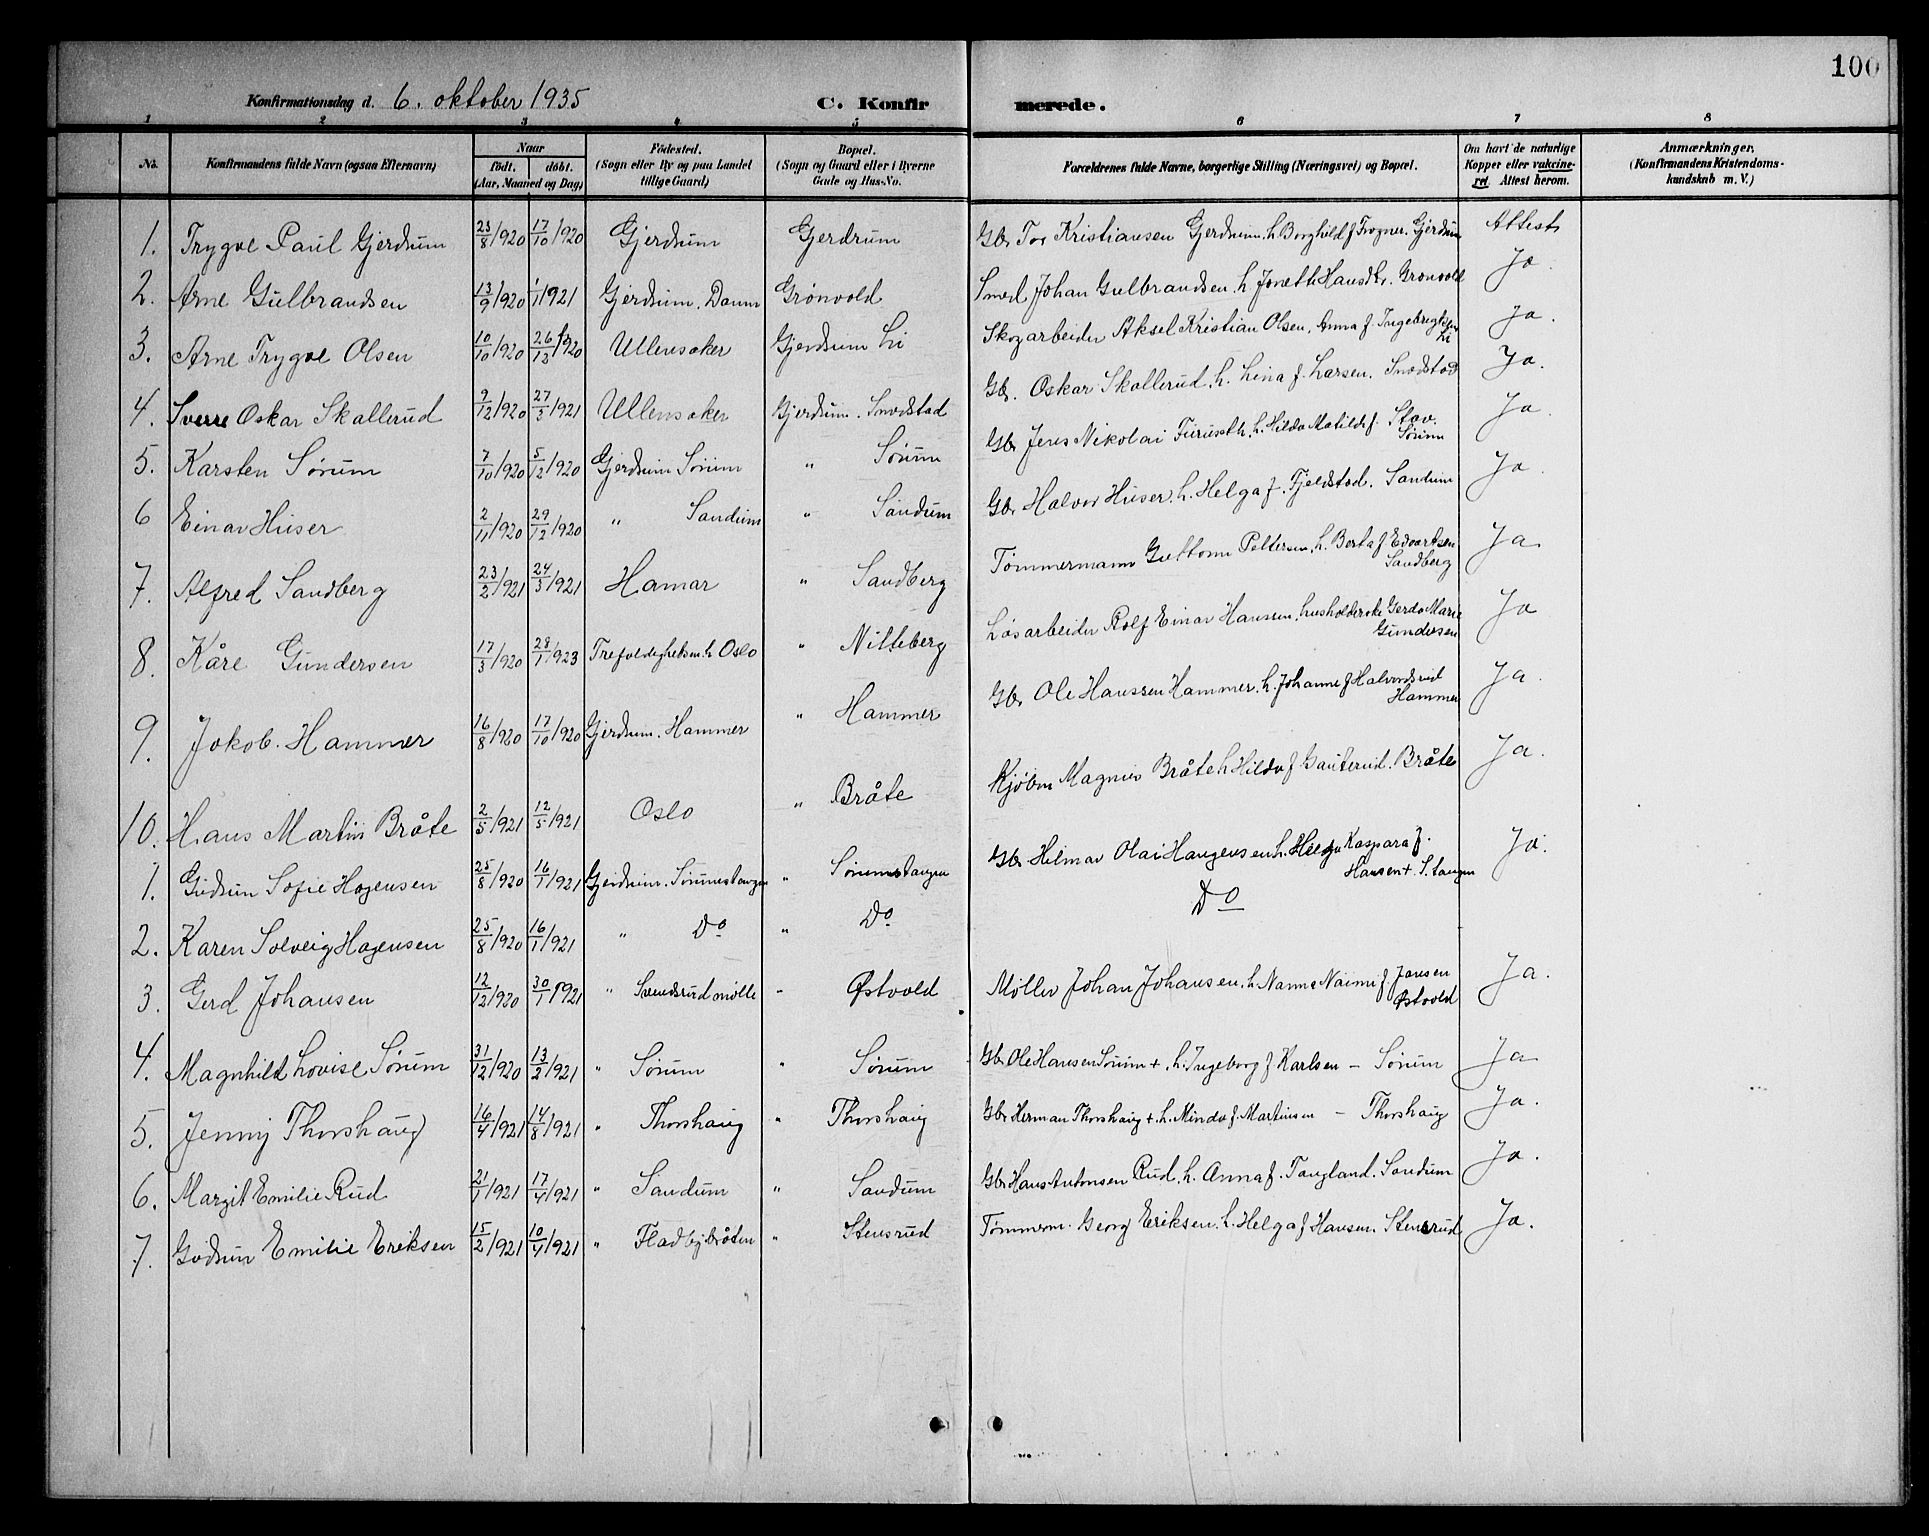 100
Konfirmationsdag d. 6. oktober 1935 C. Konfirmerede.
1 2 3 4 5 6 7 8
No. Konfirmandens fulde Navn (ogsaa Efternavn) Naar født. døbt. (Aar, Maaned og Dag) Fødested. (Sogn eller By og paa Landet tillige Gaard) Bopæl. (Sogn og Gaard eller i Byerne Gade og Hus-No. Forældrenes fulde Navne, borgerlige Stilling (Næringsvei) og Bopæl. Om havt de naturlige Kopper eller vakcineret. Attest herom. Anmærkninger. (Konfirmandens Kristendomskundskab m. V.)
1. Trygve Paul Gjerdrum 23/8/920 17/10/920 Gjerdrum Gjerdrum Gbr Tor Kristiansen Gjerdrum h. Borghild f Frogner. Gjerdrum Attest
2. Arne Gulbrandsen 13/9/920 1/1 1921 Gjerdrum. Grønvold Smed Johan Gulbrandsen h. Grønvold Ja.
3. Arne Trygve Olsen 10/10/920 26/12/920 Ullensaker Gjerdrum Li Skogarbeider Aksel Kristian Olsen, Anna f. Ingebregtsen Li Ja.
4. Sverre Oskar Skallerud 9/12/920 27/3/921 Ullensaker Gjerdrum. Smedstad Gbr. Oskar Skallerud, h. Lina f. Larsen. Smedstad Ja.
5. Karsten Sørum 7/10/920 5/12/920 Gjerdrum Sørum " Sørum Gbr Jens Nikolai Furuseth, h. Hilda Matilde f. Stav. Sørum Ja
6 Einar Huser 2/11/920 29/12/920 " Sandum " Sandum Gbr Halvor Huser. h. Helga f. Fjeldstad. Sandum Ja
7. Alfred Sandberg 23/2/921 24/3/921 Hamar " Sandberg Tømmermann Guttorm Pettersen, h. Berta f Edvartsen Sandberg Ja
8. Kåre Gundersen 17/3/920 28/1/923 Trefoldighetsm.h Oslo " Nitteberg Løsarbeider Rolf Einar Hansen, husholderske Gerda Marie Gundersen Ja
9. Jakob. Hammer 16/8/920 17/10/920 Gjerdrum. Hammer " Hammer Gbr Ole Hanssen Hammer. h. Johanne f Halvordsrud Hammer Ja.
10. Hans Martin Bråte 2/5/921 12/5/921 Oslo " Bråte Kjøbm Magnus Bråte h Hilda f Gauterud. Bråte Ja.
1. Gudrun Sofie Hagensen 25/8/920 16/1/921 Gjerdrum. Sørumstangen " Sørumstangen Gbr Hilmar Olai Haugensen h. Helga Kaspara f. Hansen +. S.tangen Ja.
2. Karen Solveig Hagensen 25/8/920 16/1/921 " Do " Do Do
3. Gerd Johansen 12/12/920 30/1 1921 " Svendsrud mølle - Østvold Møller Johan Johansen, h. Nanna Naimi f. Jansen Østvold Ja.
4. Magnhild Lovise Sørum 31/12/920 13/2/921 " Sørum " Sørum Gbr Ole Hansen Sørum +, h. Ingeborg f Karlsen – Sørum Ja
5. Jenny Thorshaug 16/4/921 14/8/921 " Thorshaug " Thorshaug Gbr Herman Thorshaug +. h. Minda f. Martinsen – Thorshaug Ja.
6. Margit Emilie Rud 21/1/921 17/4/921 " Sandum " Sandum Gbr Hans Antonsen Rud, h. Anna f. Tangland. Sandum Ja.
7. Gudrun Emilie Eriksen 15/2/921 10/4/921 " Fladbybråten " Stensrud Tømmerm. Georg Eriksen. h. Helga f Hansen. Stensrud Ja.